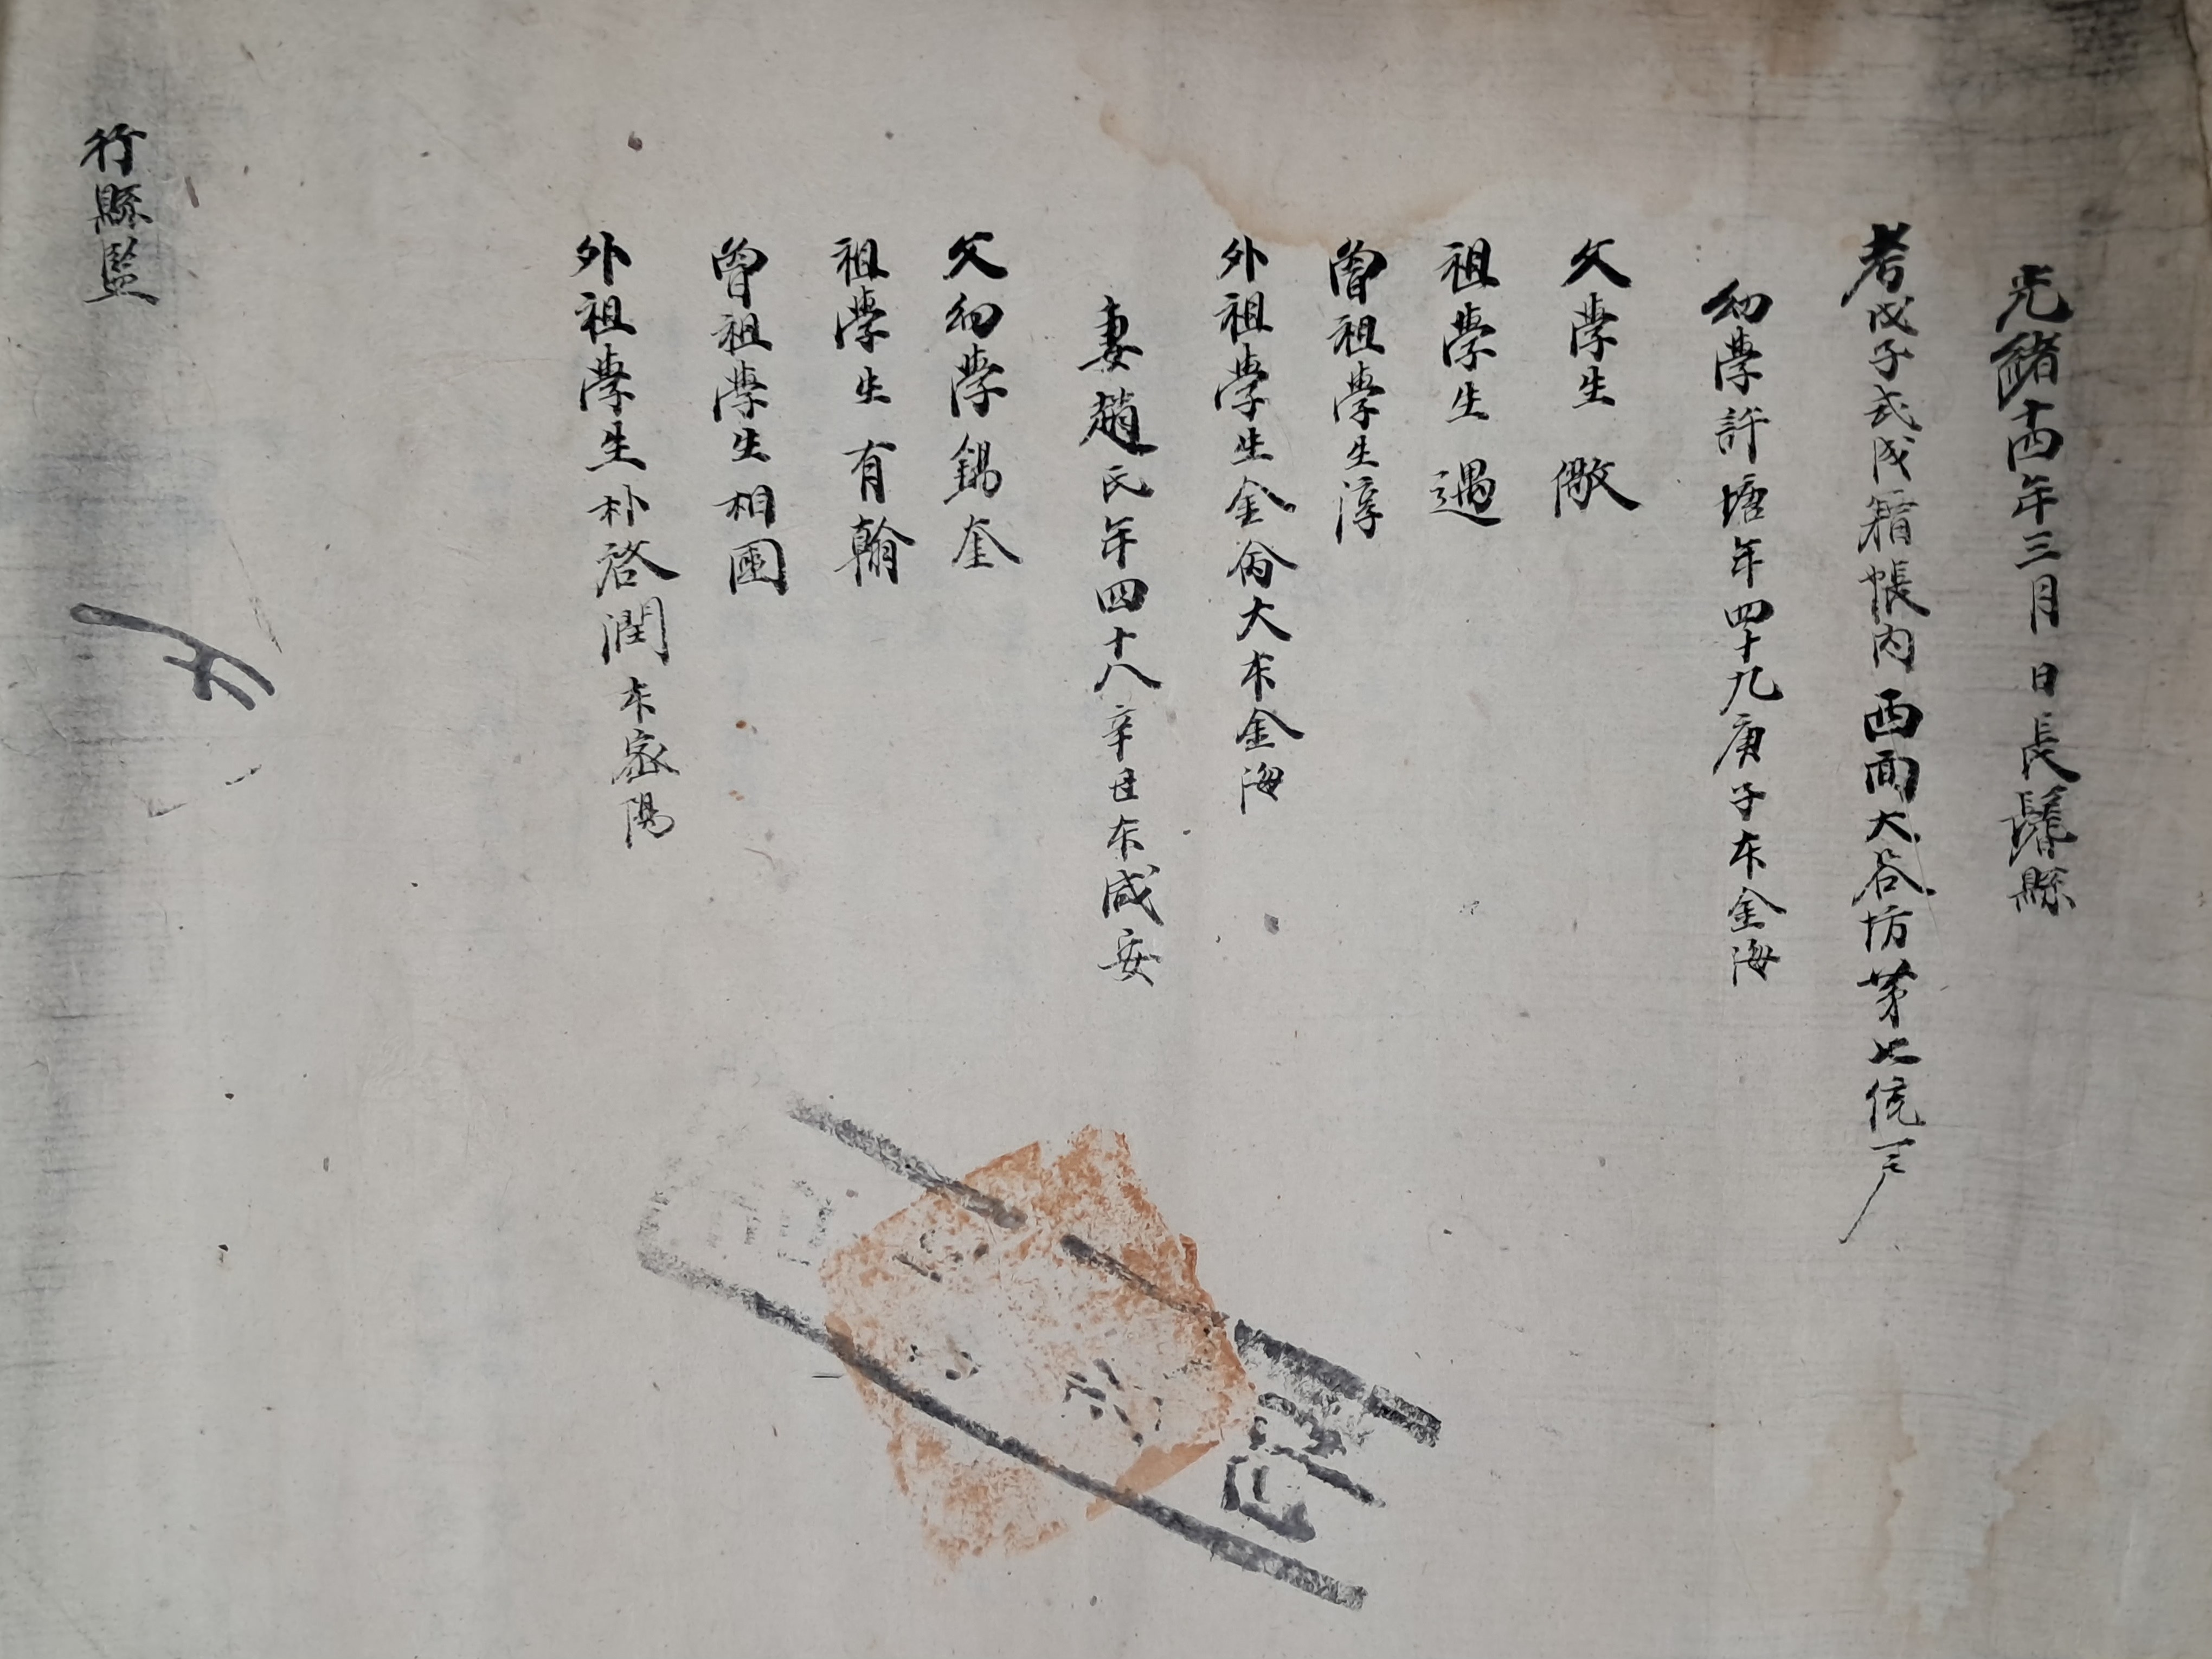 光緖十四年三月 日長鬐縣
考戊子式成籍帳內西面大谷坊苐七統一戶
幼學許塘年四十九庚子本金海
父學生 儆
祖學生 遇
曾祖學生淳
外祖學生金大本金海
妻趙氏年四十八辛丑本咸安
父幼學錫奎
祖學生有翰
曾祖學生相國
外祖學生朴啓潤本密陽
行縣監